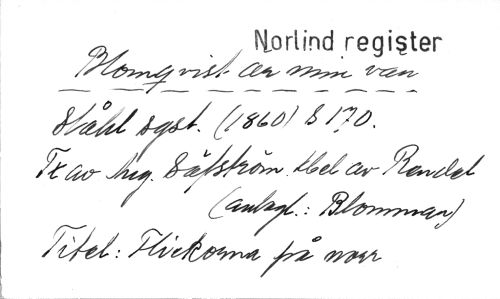 Norlind register
Blomqvist är min vän
Ståhl sgst. (1860) S 170.
Tt av Aug. Säfström. Mel av Randel
(anlagt.: Blomman)
Titel: Flickorna på norr